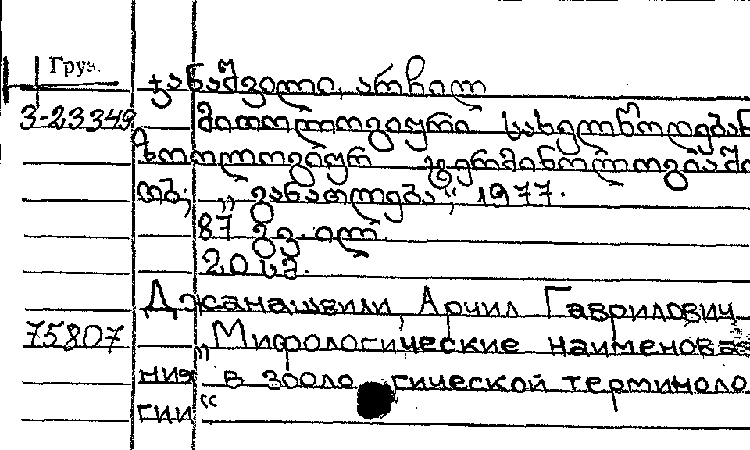 Груз.
ჯანაშვილი, არჩილ
3-23349
მითოლოგიური სახელწოდებან
ზოოლოგიურ ტერმინოლოგიაში
თბ; „განათლება“, 1977.
87 გვ. ილ.
20 კაპ.
Джанашвили, Арчил Гаврилович
75807
„Мифологические наименова
ния в зооло гической терминоло
гии“